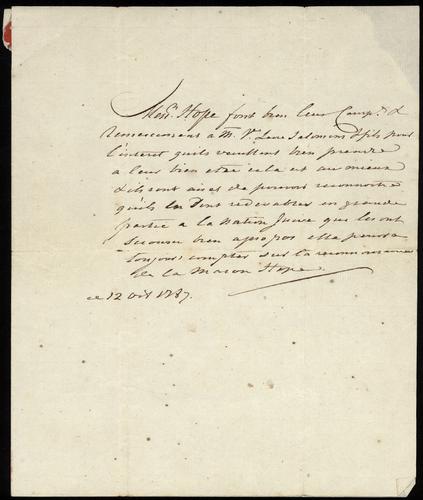 Mess.rs Hope font bien leur Comp.ts &
Remerciemens a M. V.e Levi Salomons & fils pour
l'interet qu'ils veuillent bien prendre
a leur bien etre cela et au mieux
& ils sont aises de pouvoir reconnoitre
qu'ils en sont redevables en grande
partie a la Nation Juive que les ont
secourus bien apropos elle pourra
toujours compter sur la reconnoissance
de la Maison Hope.
ce 12 1787.